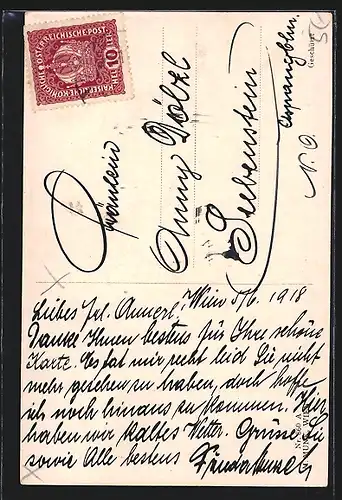 KAISERLICHE KÖNIGLICHE ÖSTERREICHISCHE POST
10 HELLER 10
Fräulein
Anny Dölzl
Seebenstein
Aspangbhn.
N. Ö.
Geschützt
Wien 5/6. 1918
Liebes Frl. Annerl,
Danke Ihnen bestens für Ihre schöne
Karte. Es tat mir recht leid Sie nicht
mehr gesehen zu haben, doch hoffe
ich noch hinaus zu kommen. Hier
haben wir kaltes Wetter. Grüsse Sie
sowie Alle bestens